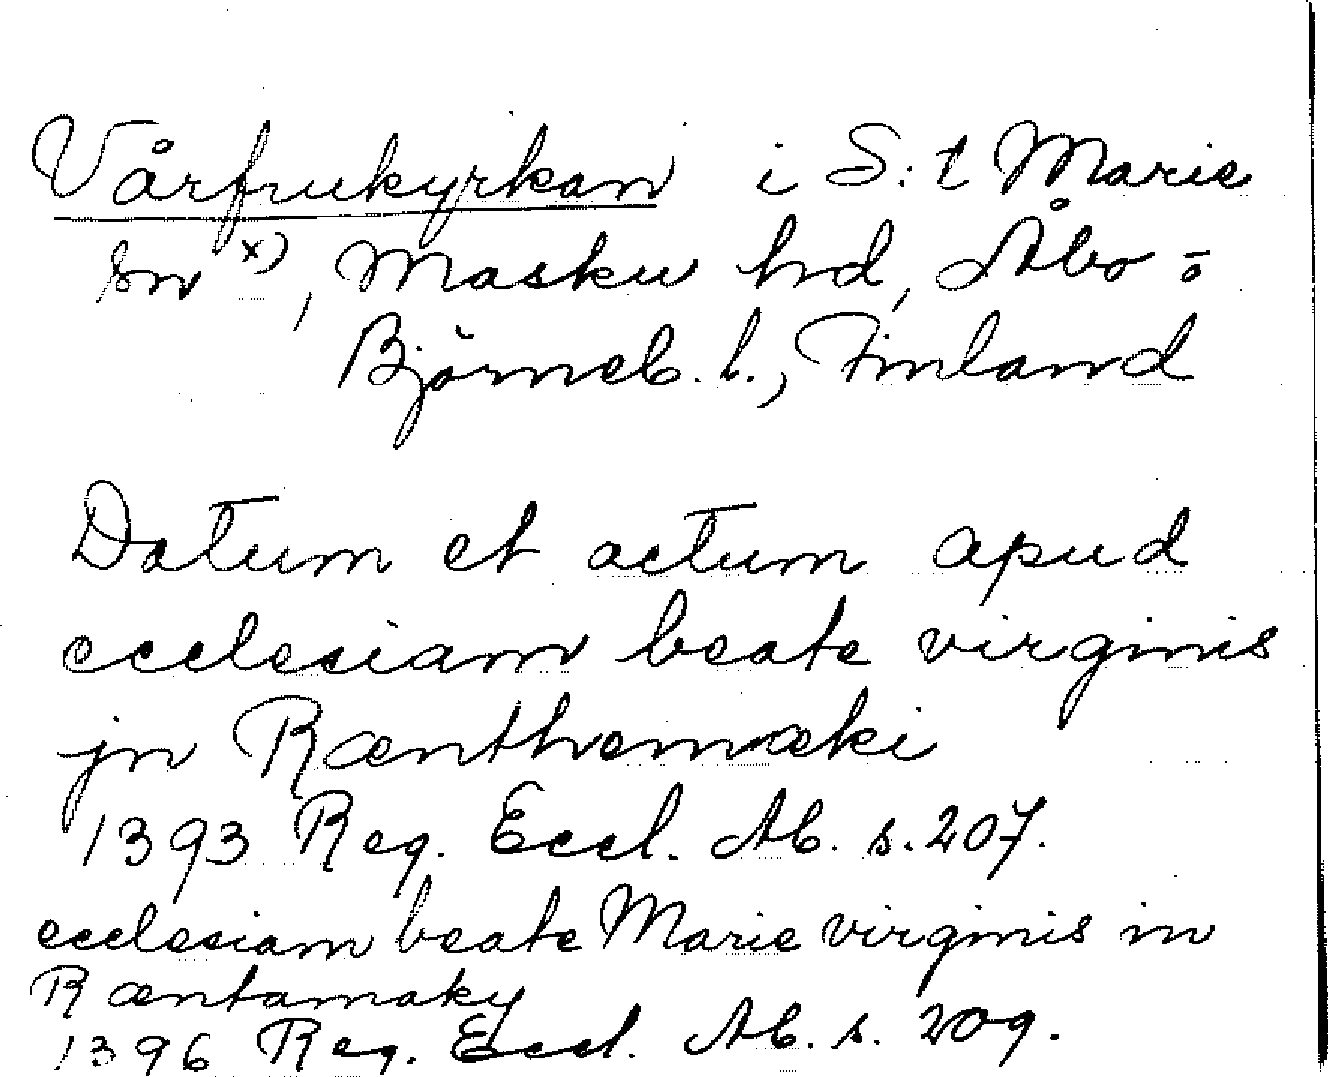 Vårfrukyrkan i S:t Marie
sn x), Masku hd, Åbo-o
Björneb. l., Finland
Datum et actum apud
ecclesiam beate virginis
jn Rænthemæki
1393 Reg. Eccl. Ab. s. 207.
ecclesiam beate Marie virginis in
Ræntamaky
1396 Reg. Eccl. Ab. s. 209.